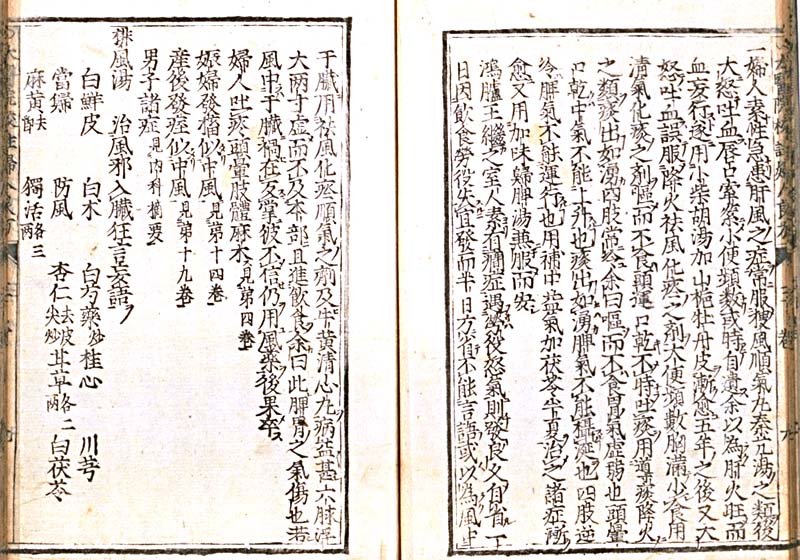 一婦人素性急患肝風之症常服搜風順氣丸秦艽湯之類後
大怒吐血唇口牽緊小便頻數或時自遺余以為肝火旺而
血妄行遂用小柴胡湯加山梔牡丹皮漸愈五年之後又大
怒吐血誤服降火祛風化痰之劑大便頻數胸滿少食用
清氣化痰之劑嘔而不食頭運口乾不時吐痰用導痰降火
之類痰出如湧四肢常冷余曰嘔而不食胃氣虛弱也頭暈
口乾中氣不能上升也痰出如湧脾氣不能攝涎也四肢逆
冷脾氣不能運行也用補中益氣加茯苓半夏治之諸症漸
愈又用加味歸脾湯兼服而安
鴻臚王繼之室人素有癇症遇勞役怨氣則發良久自省一
日因飲食勞役失宜發而半日方省不能言語或以為風中
于臟用祛風化痰順氣之劑及牛黃清心丸病益甚六脉浮
大兩寸虛而不及本部且進飲食余曰此脾胃之氣傷也若
風中于臟禍在反掌彼不信仍用風藥後果卒
婦人吐痰頭暈肢體麻木見第四卷
娠婦發搐似中風見第十四卷
產後發痙似中風見第十九卷
男子諸症見內科摘要
排風湯 治風邪入臟狂言妄語
白鮮皮 白朮 白芍藥炒 桂心 川芎
當歸 防風 杏仁去皮尖炒 甘草各二兩 白茯苓
麻黃去節 獨活各三兩